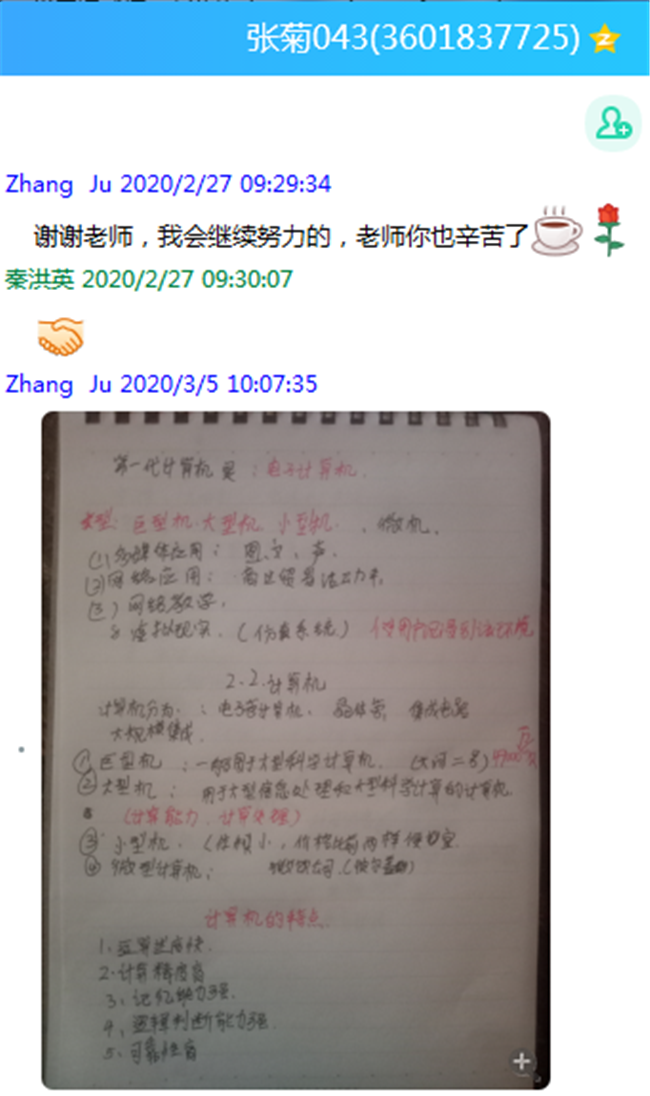 张菊043(3601837725)
Zhang Ju 2020/2/27 09:29:34
谢谢老师，我会继续努力的，老师你也辛苦了
秦洪英 2020/2/27 09:30:07
Zhang Ju 2020/3/5 10:07:35
第一代计算机是：电子计算机.
类型: 巨型机.大型机.小型机. 、微机.
(1)多媒体应用： 图、文、声.
(2)网络应用：
(3)网络教学,
虚拟现实.（仿真系统.）
2.2.计算机
计算机分为：电子管计算机. 晶体管, 集成电路
大规模集成.
①巨型机：一般用于大型科学计算机. (天河二号)
②大型机： 用于大型信息处理和大型科学计算的计算机.
（计算能力，计算处理）
③小型机.（体积小，价格
④微型计算机：
计算机的特点.
1.运算速度快.
2.计算精度高
3、记忆能力强.
4、逻辑判断能力强.
5、可靠性高